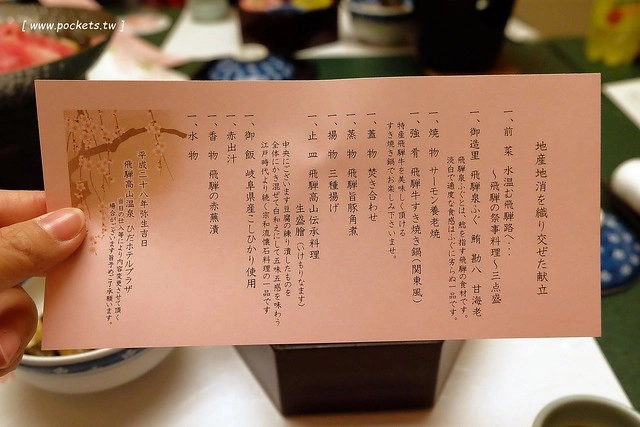 [ www.pockets.tw ]
地産地消を織り交ぜた献立
一、前菜 水温む飛騨路へ…
～飛騨の祭事料理～三点盛
一、御造里 飛騨泉ふぐ 鮪 勘八 甘海老
飛騨泉ふぐとは、鯰を指す飛騨の食材です。
淡白で適度な食感はふぐに劣らぬ一品です。
一、焼物 サーモン養老焼
一、強肴 飛騨牛すき焼き鍋(関東風)
特産飛騨牛を美味しく頂ける
すき焼き鍋でお楽しみ下さいませ。
一、蓋物 焚き合わせ
一、蒸物 飛騨旨豚角煮
一、揚物 三種揚げ
一、止皿 飛騨高山伝承料理
生盛膾(いけもりなます)
中央にございます豆腐の練り潰したものを
全体にかき混ぜて白和えにして五味五感を味わう
江戸時代より続く宗和流懐石料理の一品です
一、御飯 岐阜県産こしひかり使用
一、赤出汁
一、香物 飛騨の赤蕪漬
一、水物
平成二十八年弥生吉日
飛騨高山温泉 ひだホテルプラザ
当日の仕入等により内容変更させて頂く
場合がございます旨予めご了承願います。